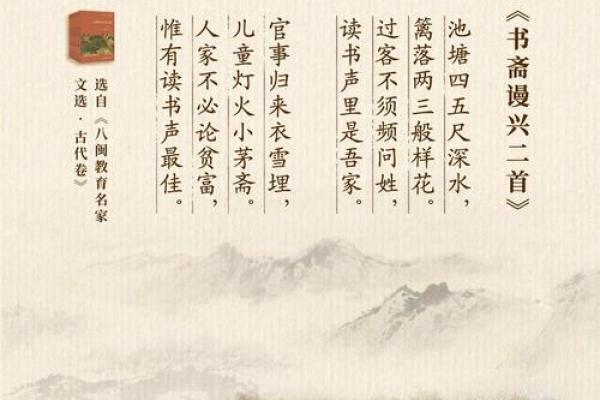 《书斋谩兴二首》
池塘四五尺深水，
篱落两三般样花。
过客不须频问姓，
读书声里是吾家。
官事归来衣雪埋，
儿童灯火小茅斋。
人家不必论贫富，
惟有读书声最佳。
选自《八闽教育名家
文选·古代卷》